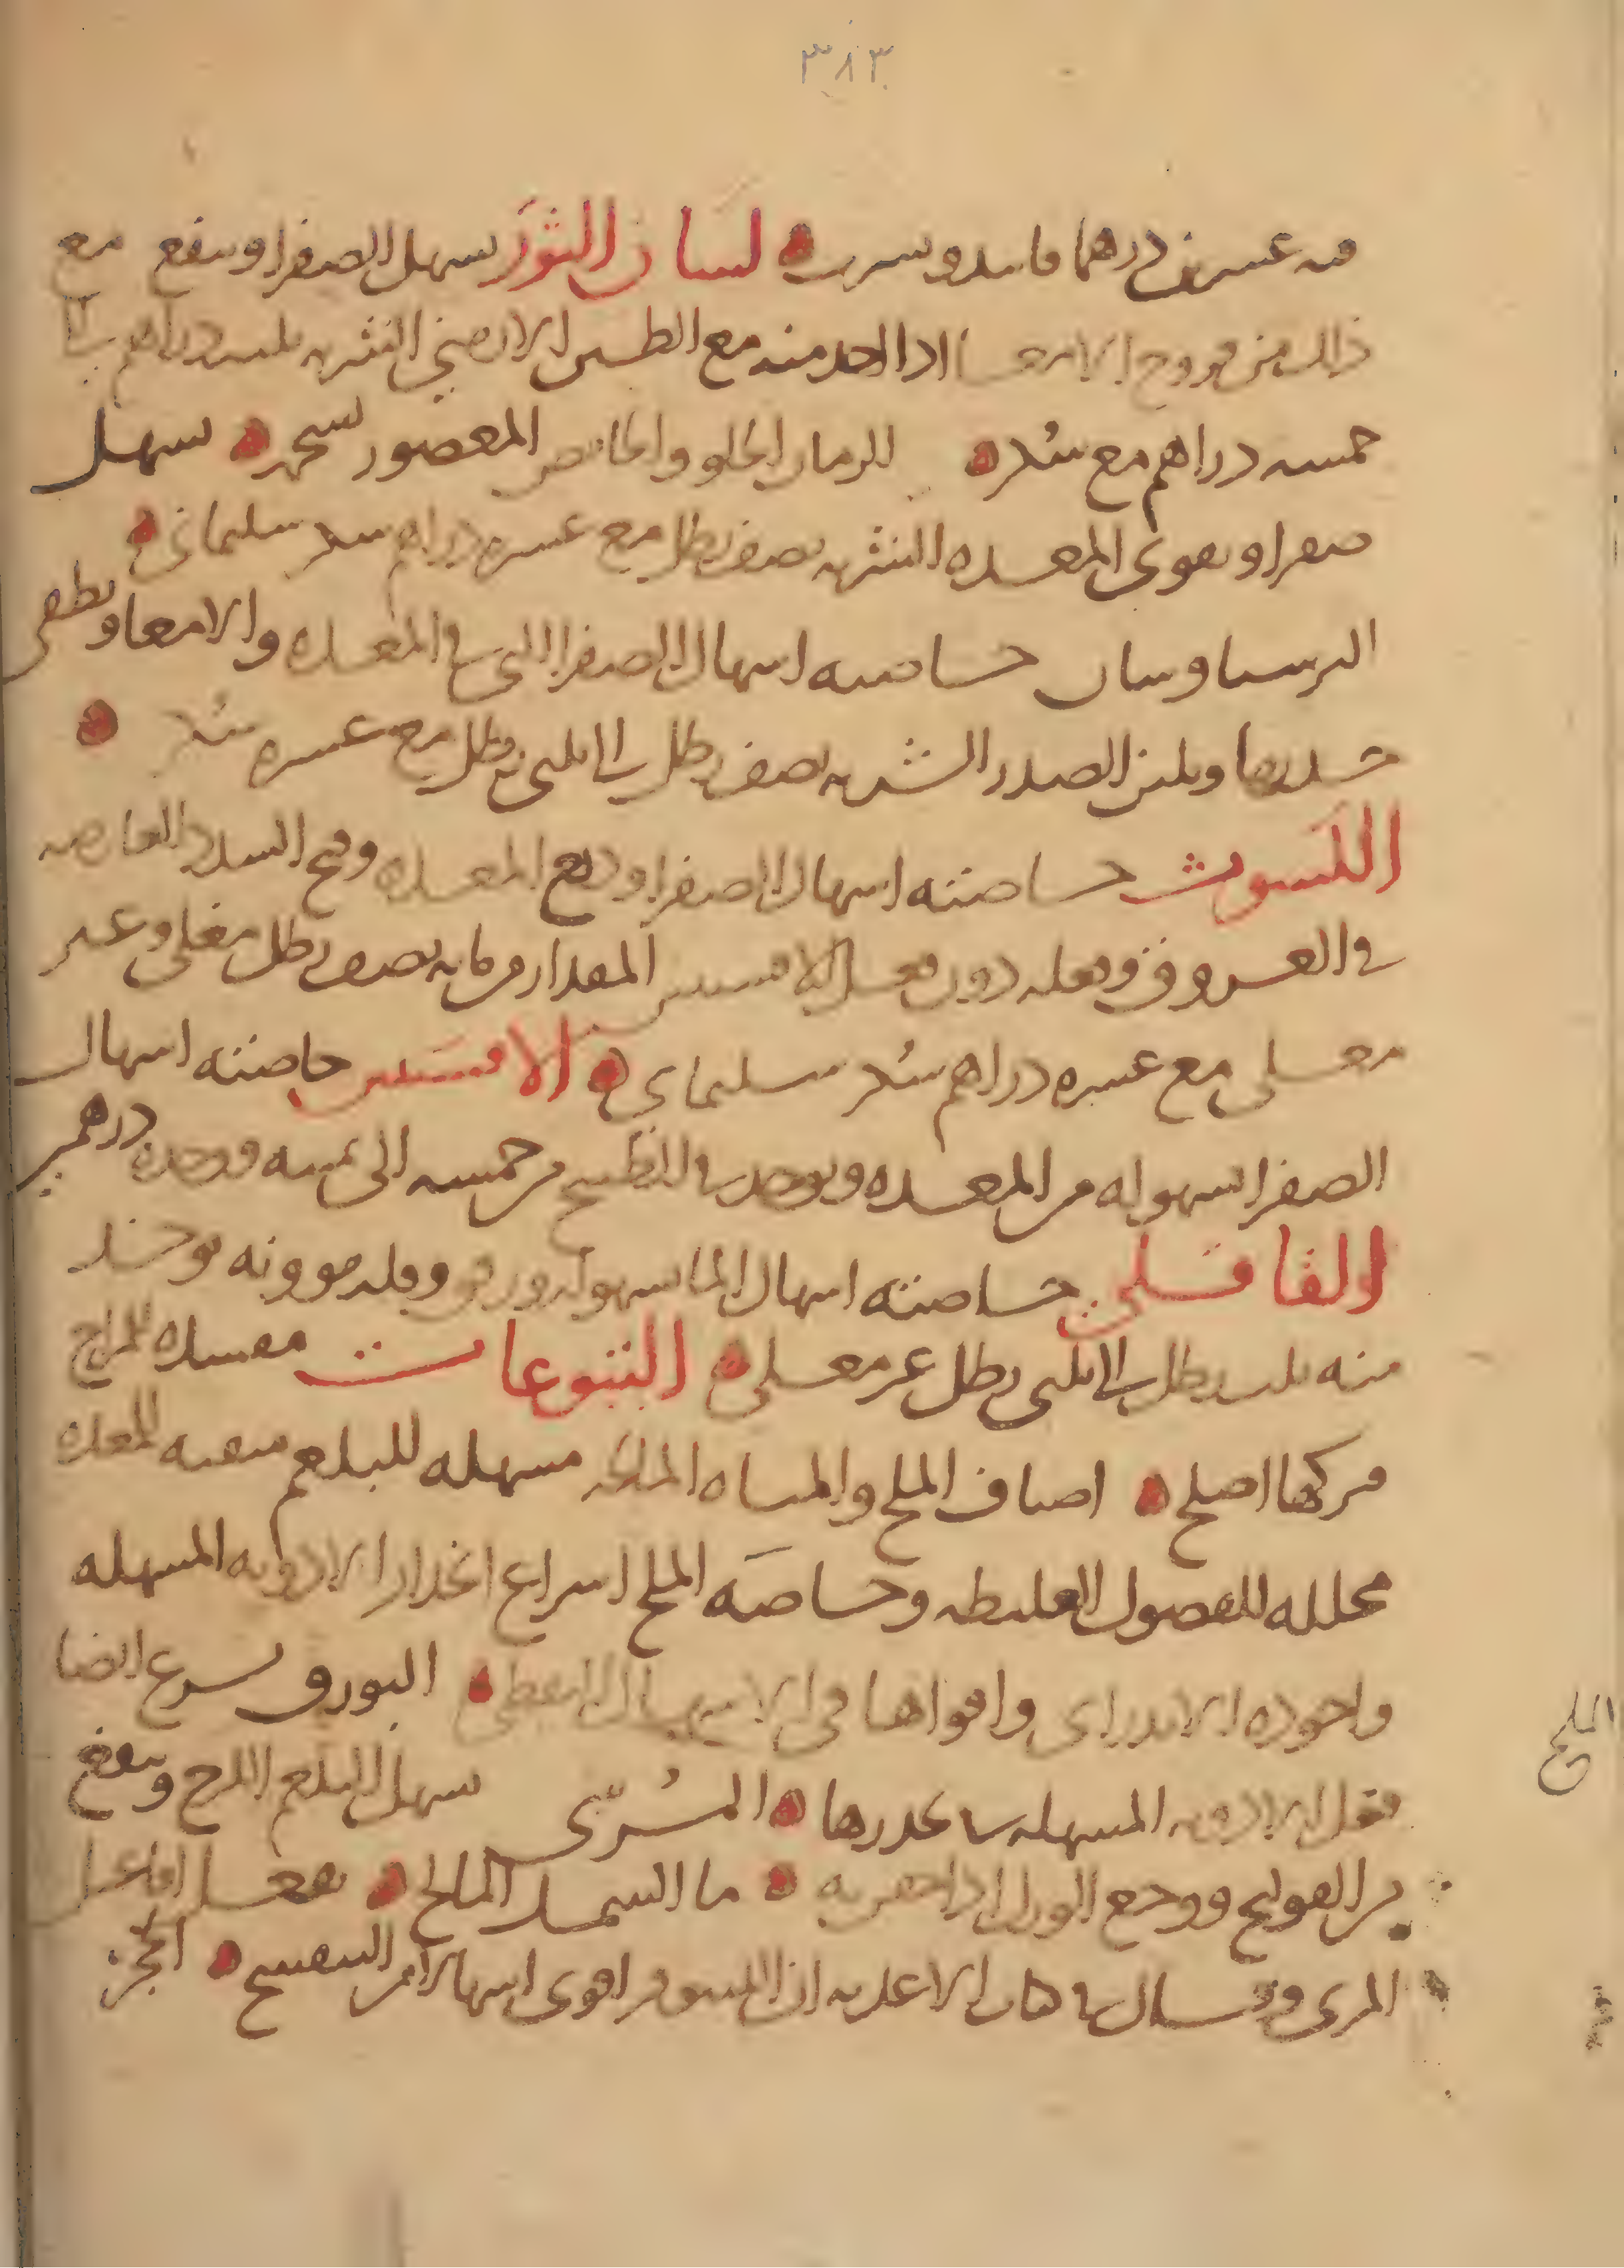 ٣٨٣
فيه عشرين درهما فانيد ويشرب لسان الثور يسهل الصفرا وينفع مع
ذلك من قروح الامعا اذا اخذ منه مع الطين الارمني الشربه ثلثه دراهم الى
خمسه دراهم مع سكر الرمان الحلو والحامض المعصور بشحمه يسهل
صفرا ويقوى المعده الشربه نصف رطل مع عشره دراهم سكر سليمانى
البرسياوسان خاصيته اسهال الصفرا التى فى المعده والامعا ويطفى
حدتها ويلين الصدر الشربه نصف رطل الى ثلثى رطل مع عشره سكر
الكشوث خاصيته اسهال الصفرا ودبغ المعده وفتح السدد العارضه
فى العروق وفعله دون فعل الافسنتين المقدار من مايه نصف رطل مغلى وغير
مغلى مع عشره دراهم سكر سليمانى الافسنتين خاصيته اسهال
الصفرا بسهوله من المعده ويوخذ فى الطبيخ من خمسه الى ثمنيه ووحده درهمين
القاقلى خاصيته اسهال الما بسهوله ورفق وقله موونه يوخذ
منه ثلث رطل الى ثلثى رطل غير مغلى اليتوعات مفسده للمزاج
فتركها اصلح اصناف الملح والمياه المالحه مسهله للبلغم منقيه للمعده
محلله للفضول الغليظه وخاصه الملح اسراع انحدار الادويه المسهله
واجوده الاندرانى واقواها فى الاسهال النفطى البورق يسرع ايضا
فعل الادويه المسهله فى تحدرها المُرّى يسهل البلغم اللزج وينفع
من القولنج ووجع الورك اذا احتقن به ما السمك المالح يفعل افاعيل
المرى وقال فى كتاب الاغذيه ان النيلوفر اقوى اسهالا من البنفسج الجز
الملح